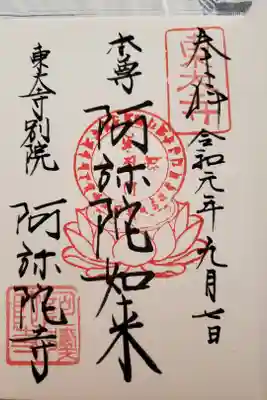 奉拝 令和元年九月七日
本尊 阿弥陀如来
東大寺別院 阿弥陀寺
東大寺